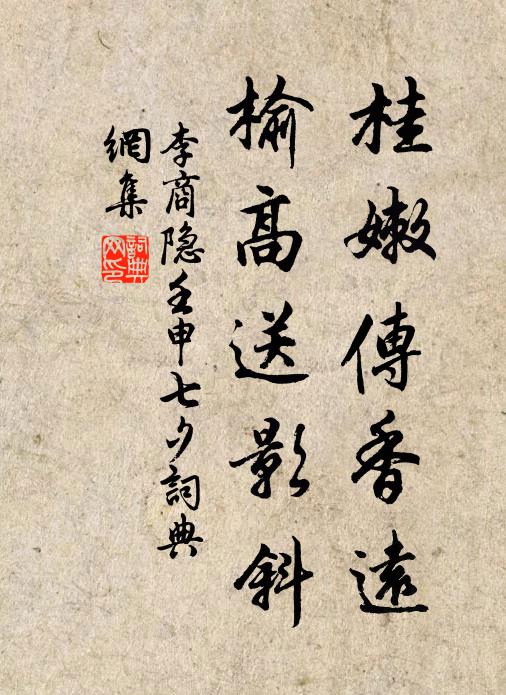 桂嫩傳香遠
榆高送影斜
李商隐壬申七夕詞典
網集
詞典
网印